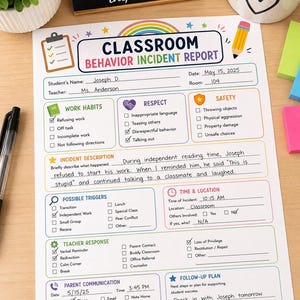 CLASSROOM
BEHAVIOR INCIDENT REPORT
Student's Name: Joseph D. Date: May 15, 2025
Teacher: Ms. Anderson Room: 104
WORK HABITS
Refusing work
Off task
Incomplete work
Not following directions
RESPECT
Inappropriate language
Teasing others
Disrespectful behavior
Talking out
SAFETY
Throwing objects
Physical aggression
Property damage
Unsafe choices
INCIDENT DESCRIPTION
Briefly describe what happened: During independent reading time, Joseph
refused to start his work. When I reminded him, he said "This is
stupid" and continued talking to a classmate and laughed.
POSSIBLE TRIGGERS
Transition
Independent Work
Small Group
Recess
Lunch
Special Class
Peer Conflict
Other:
TIME & LOCATION
Time of Incident: 10:15 AM
Location: Classroom
Others Involved? Yes No
If yes, who?
TEACHER RESPONSE
Verbal Reminder
Redirection
Calm Corner
Break
Parent Contact
Buddy Classroom
Office Referral
Counselor
Loss of Privilege
Restitution / Repair
Other:
PARENT COMMUNICATION
Date: 5/15/25 Time: 3:45 PM
Email Note Home
FOLLOW-UP PLAN
Next steps or plan for supporting
student success:
Check in with Joseph tomorrow